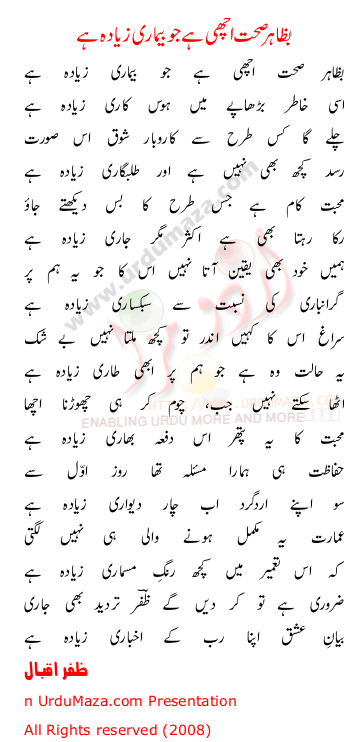 بظاہر صحت اچھی ہے جو بیماری زیادہ ہے
بظاہر صحت اچھی ہے جو بیماری زیادہ ہے
اسی خاطر بڑھاپے میں ہوس کاری زیادہ ہے
چلے گا کس طرح سے کاروبار شوق اس صورت
رسد کچھ بھی نہیں ہے اور طلبگاری زیادہ ہے
محبت کام ہے جس طرح کا بس دیکھتے جاؤ
رکا رہتا بھی ہے اکثر مگر جاری زیادہ ہے
ہمیں خود بھی یقین آتا نہیں اس کا جو یہ ہم پر
گرانباری کی نسبت سے سبکساری زیادہ ہے
سراغ اس کا کہیں اندر تو کچھ ملتا نہیں بے شک
یہ حالت وہ ہے جو ہم پر ابھی طاری زیادہ ہے
اٹھا سکتے نہیں جب، چوم کر ہی چھوڑنا اچھا
محبت کا یہ پتھر اس دفعہ بھاری زیادہ ہے
حفاظت ہی ہمارا مسئلہ تھا روز اوّل سے
سو اپنے اردگرد اب چار دیواری زیادہ ہے
عمارت یہ مکمل ہونے والی ہی نہیں لگتی
کہ اس تعمیر میں کچھ رنگِ مسماری زیادہ ہے
ضروری ہے تو کر دیں گے ظفرؔ تردید بھی جاری
بیانِ عشق اپنا رب کے اخباری زیادہ ہے
ظفر اقبال
n UrduMaza.com Presentation
All Rights reserved (2008)
www.urdumaza.com
اردو مزا
ENABLING URDU MORE AND MORE